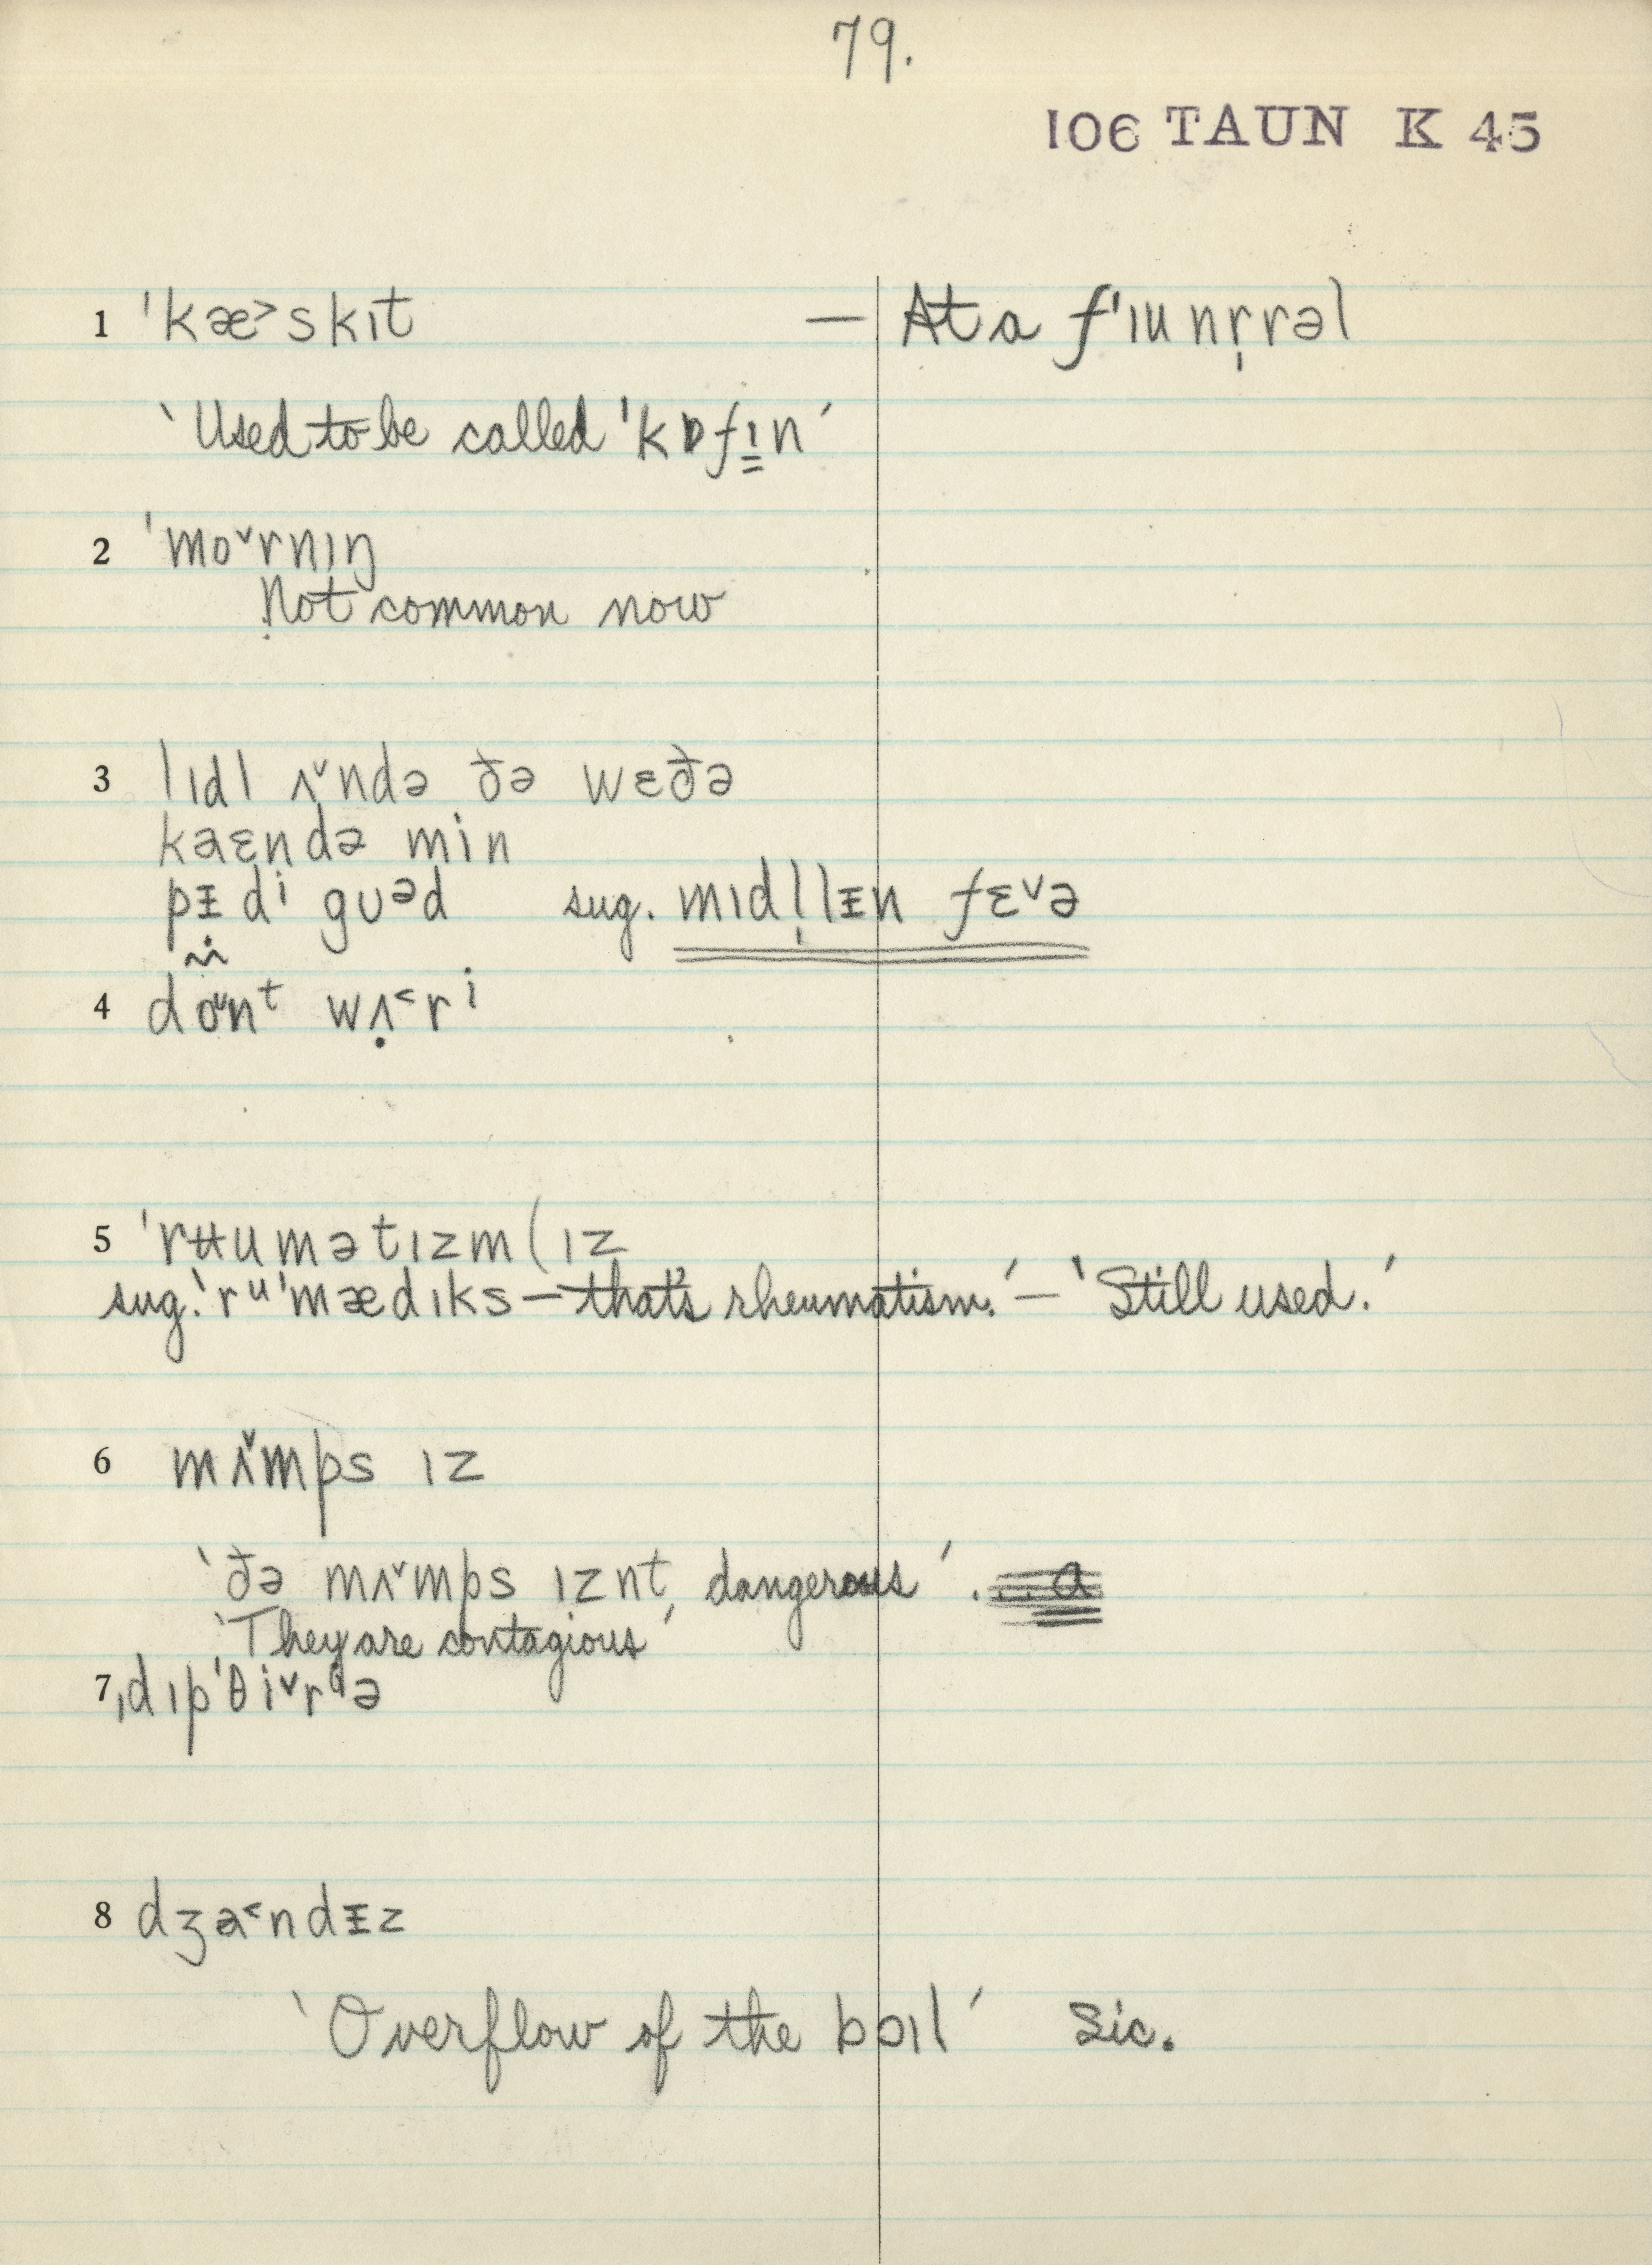 79.
106 TAUN K 45
1 ˈkæ˃skɪt — At a fˈɪu nr̩rəl
‵Used to be called ˈkɒfɪ̳n′
2 ˈmo˅rnɪŋ
Not common now
3 lɪdl ʌ˅ndə ðə wɛðə
kaɛndə min
pᵻdⁱ gʊᵊd sug. mɪdl̩lᵻn fɛ˅ə
4 dõʊ̃nᵗ wʌ̣˂rⁱ
5 ˈrʉumətɪzm(ɪz
sug. ‵rᵘˈmædɪks — that's rheumatism.′ — ‵Still used.′
6 mʌ˅mps ɪz
‵ðə mʌ˅mps ɪznt dangerous′ . . . a
‵They are contagious′
7 ˌdɪpˈθi˅rⁱə
8 dʒa˂ndᵻz
‵Overflow of the bɔɪl′ Sic.